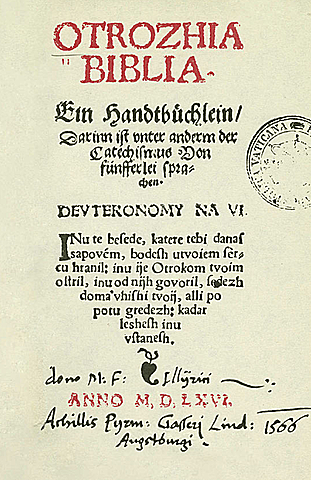 OTROZHIA
BIBLIA.
Ein Handtbüchlein/
Darinn ist vnter anderm der
Catechismus Von
fünfferlei spra-
chen.
DEVTERONOMY NA VI.
INu te beſede, katere tebi danaſ
sapovém, bodesh utvoiem ſer-
cu hranil: inu ije Otrokom tvoim
oſtril, inu od nijh govoril, ſedezh
doma vhiſhi tvoij, alli po
potu gredezh: kadar
leshesh inu
vſtanesh.
dono M. F. Illÿrici
ANNO M, D. LXVI.
Achillis Pyrm: Gasserj Lind: 1566
Augstburgi.
VATICANA